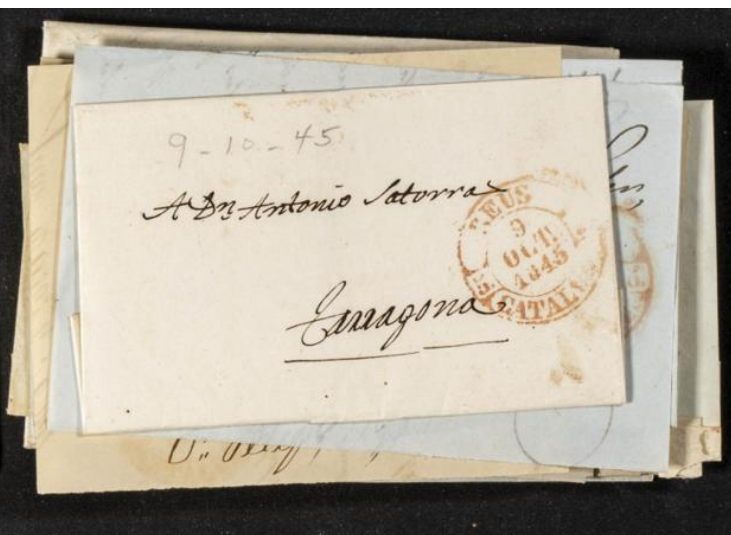 9-10-45
A Dn Antonio Satorra
REUS
9
OCT.
1845
CATALUÑA
Tarragona